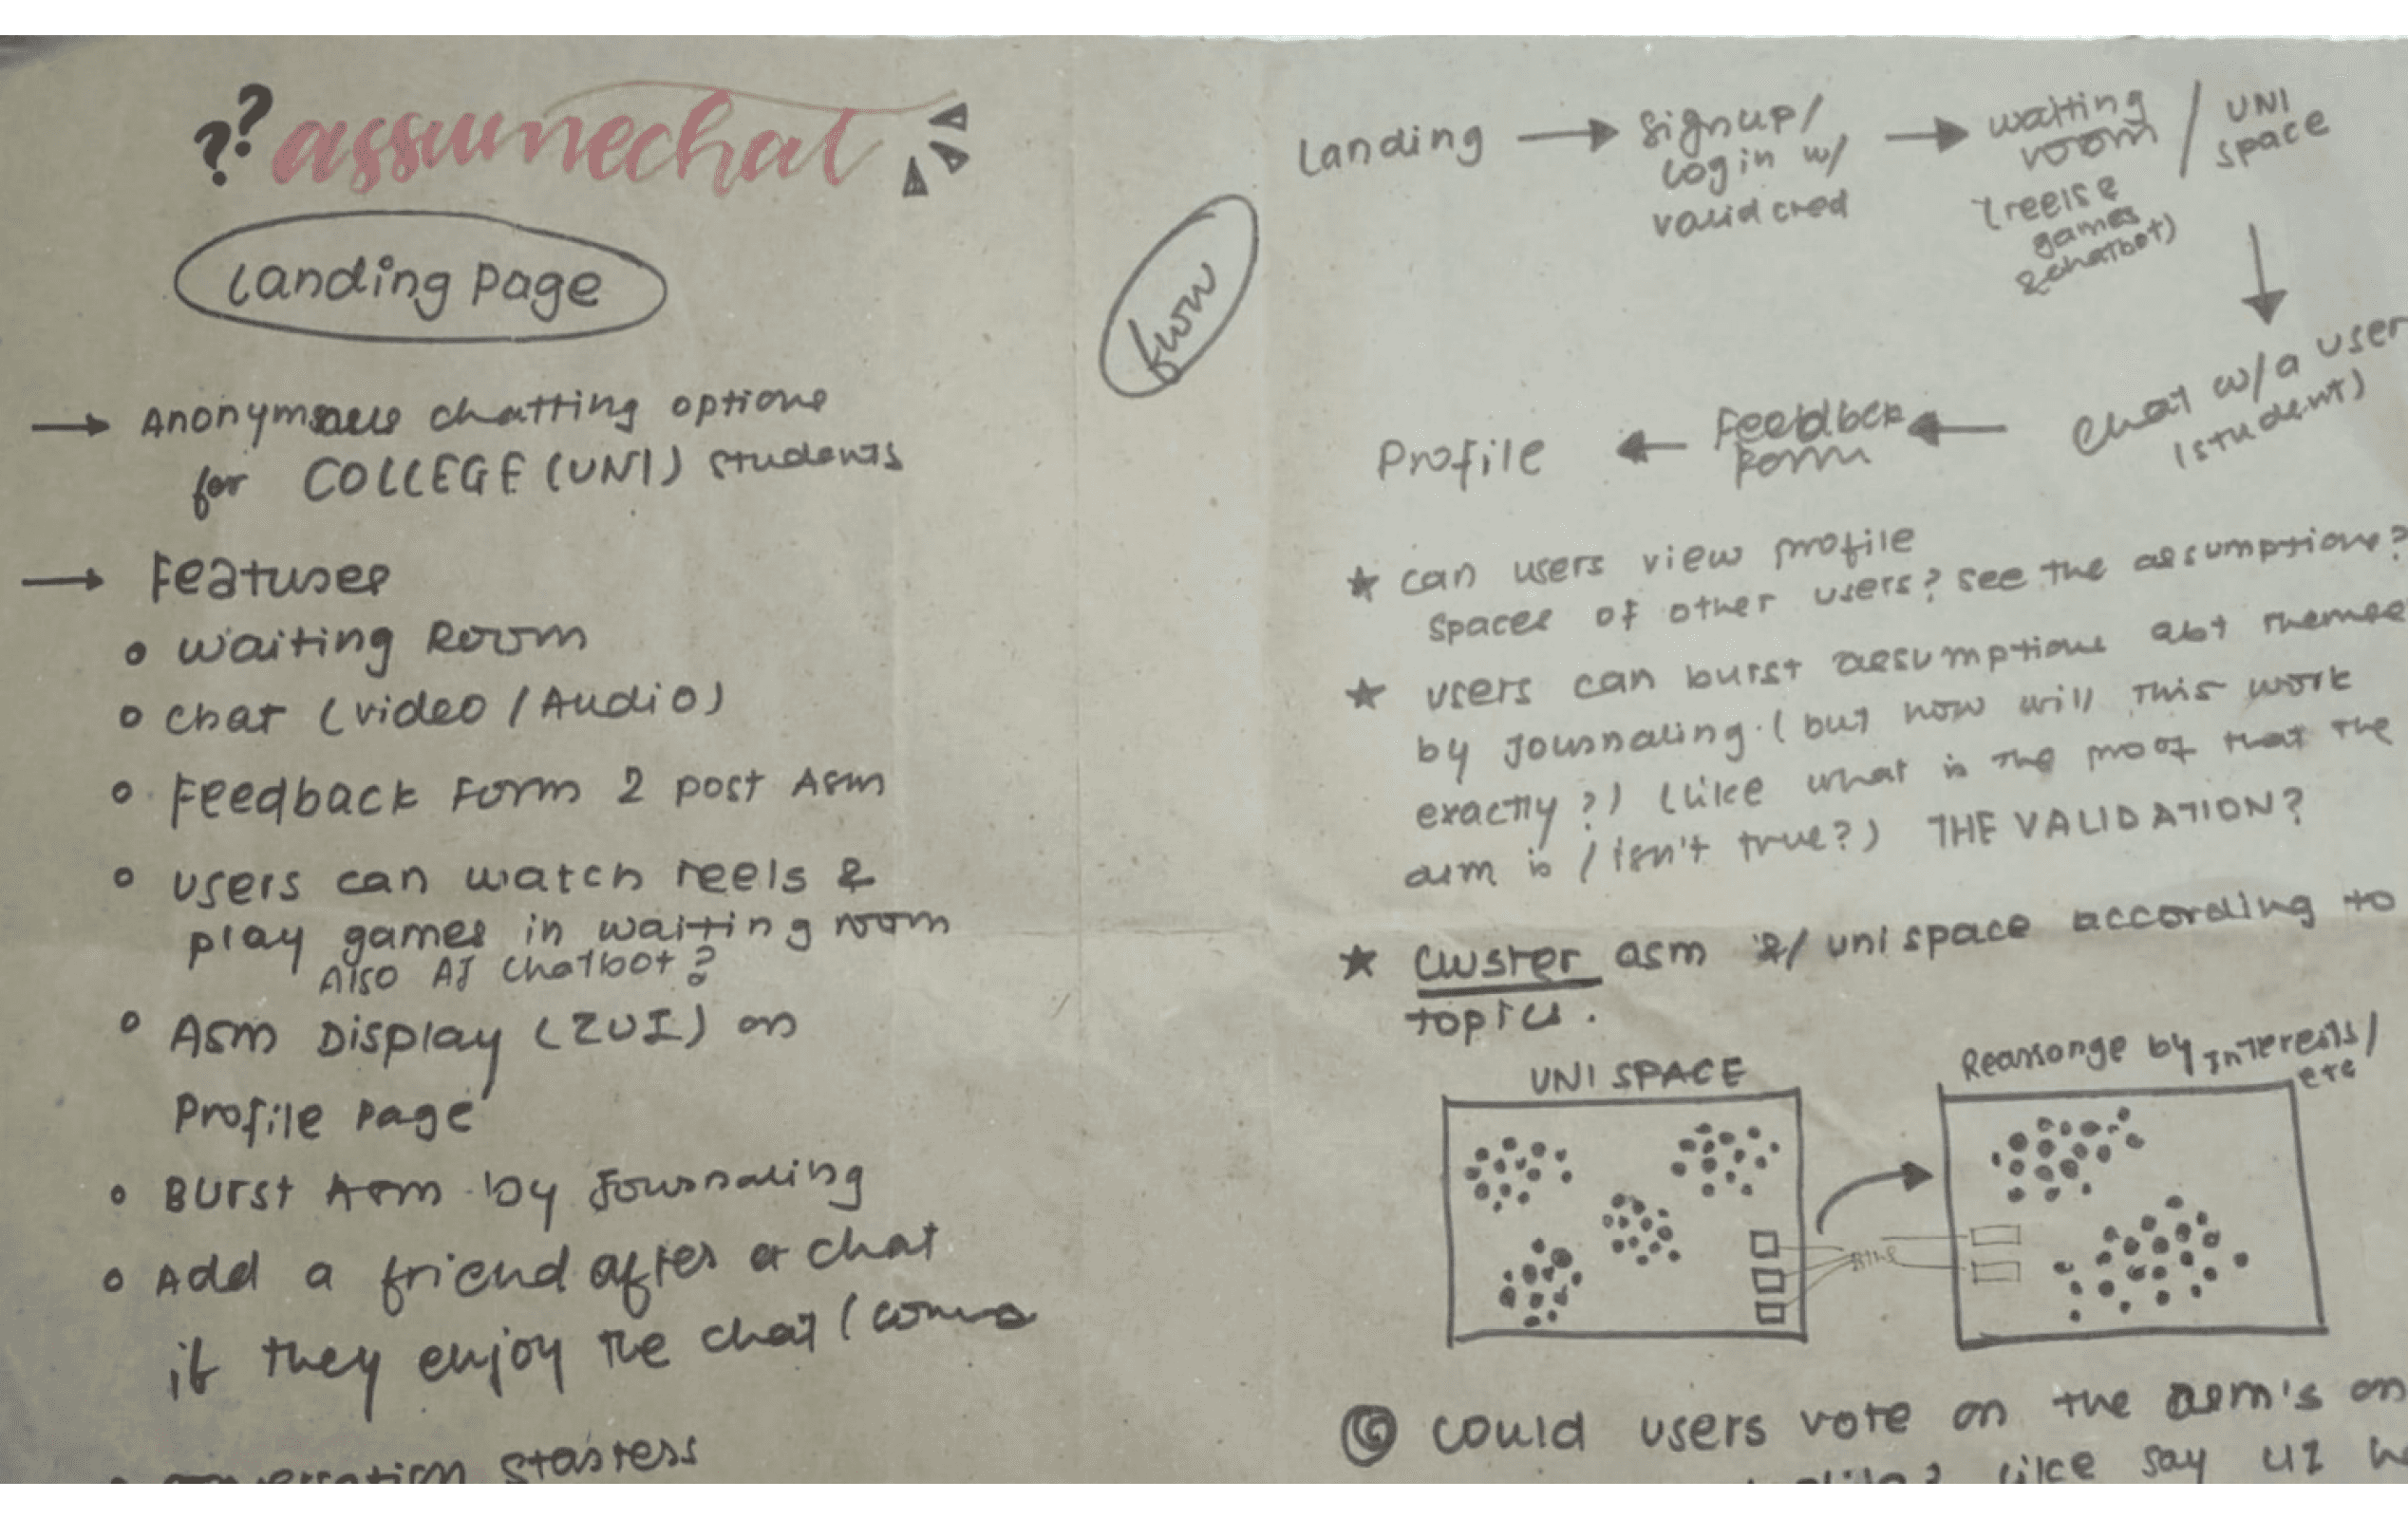 ?? assumechat
Landing Page
→ Anonymous chatting options
for COLLEGE (UNI) students
→ Features
Waiting Room
chat (video / Audio)
Feedback Form 2 post Asm
users can watch reels &
play games in waiting room
Also AI Chatbot?
Asm Display (ZUI) on
Profile Page
Burst Asm by Journaling
Add a friend after a chat
if they enjoy the chat (
conversation starters
flow
Landing → signup/ → waiting / UNI
login w/ room space
valid cred (reels &
games
& chatbot)
Profile ← Feedbck ← Chat w/ a user
Form (student)
★ can users view profile
spaces of other users? see the assumptions?
★ users can burst assumptions abt themse
by Journaling. (but how will this work
exactly?) (like what is the proof that the
asm is / isn't true?) THE VALIDATION?
★ Cluster asm &/ uni space according to
topics.
UNI SPACE
Rearrange by Interests/
etc
could users vote on the asm's on
like say U2